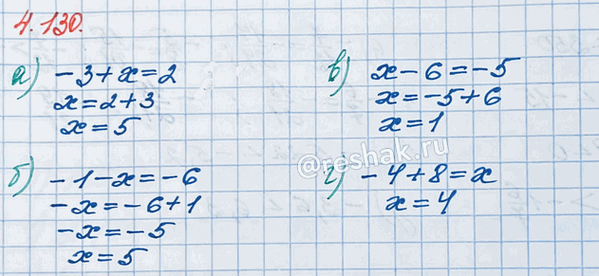 4.130.
а) -3+x=2
x=2+3
x=5
б) -1-x=-6
-x=-6+1
-x=-5
x=5
в) x-6=-5
x=-5+6
x=1
г) -4+8=x
x=4
@reshak.ru